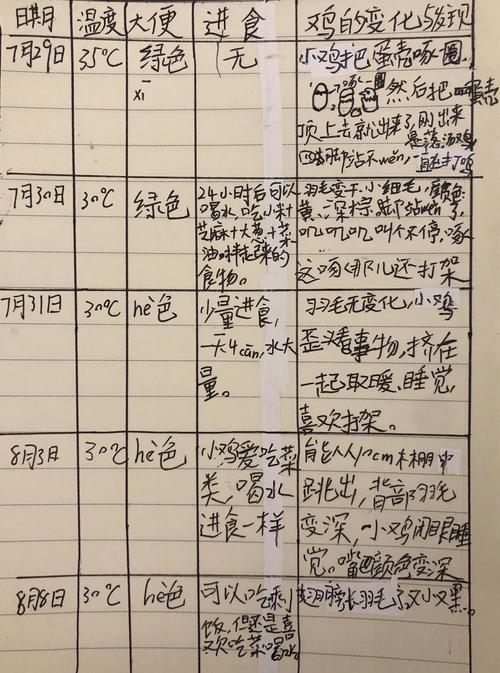 日期 温度 大便 进食 鸡的变化与发现
7月29日 35℃ 绿色 无 小鸡把蛋壳啄一圈,
xī 然后把蛋壳
顶上去就出来了,刚出来
是落汤鸡
脚站不wěn,一直打鸣
7月30日 30℃ 绿色 24小时后可以 羽毛变干,小细毛,颜色:
喝水吃小米+ 黄、深棕,脚站wěn了,
芝麻+大葱+菜 叽叽叽叫个不停,啄
油拌起来的
食物。 这啄那儿还打架
7月31日 30℃ hè色 少量进食, 羽毛无变化,小鸡
一天4cān,水大 歪头看事物,挤在
量。 一起取暖、睡觉,
喜欢打架。
8月3日 30℃ hè色 小鸡爱吃菜 能从10cm木棚中
类,喝水 跳出,背部羽毛
进食一样 变深,小鸡闭眼睡
觉。嘴巴颜色变深
8月8日 30℃ hè色 可以吃剩 翅膀长羽毛了,又小又黑。
饭,但还是喜
欢吃菜喝水